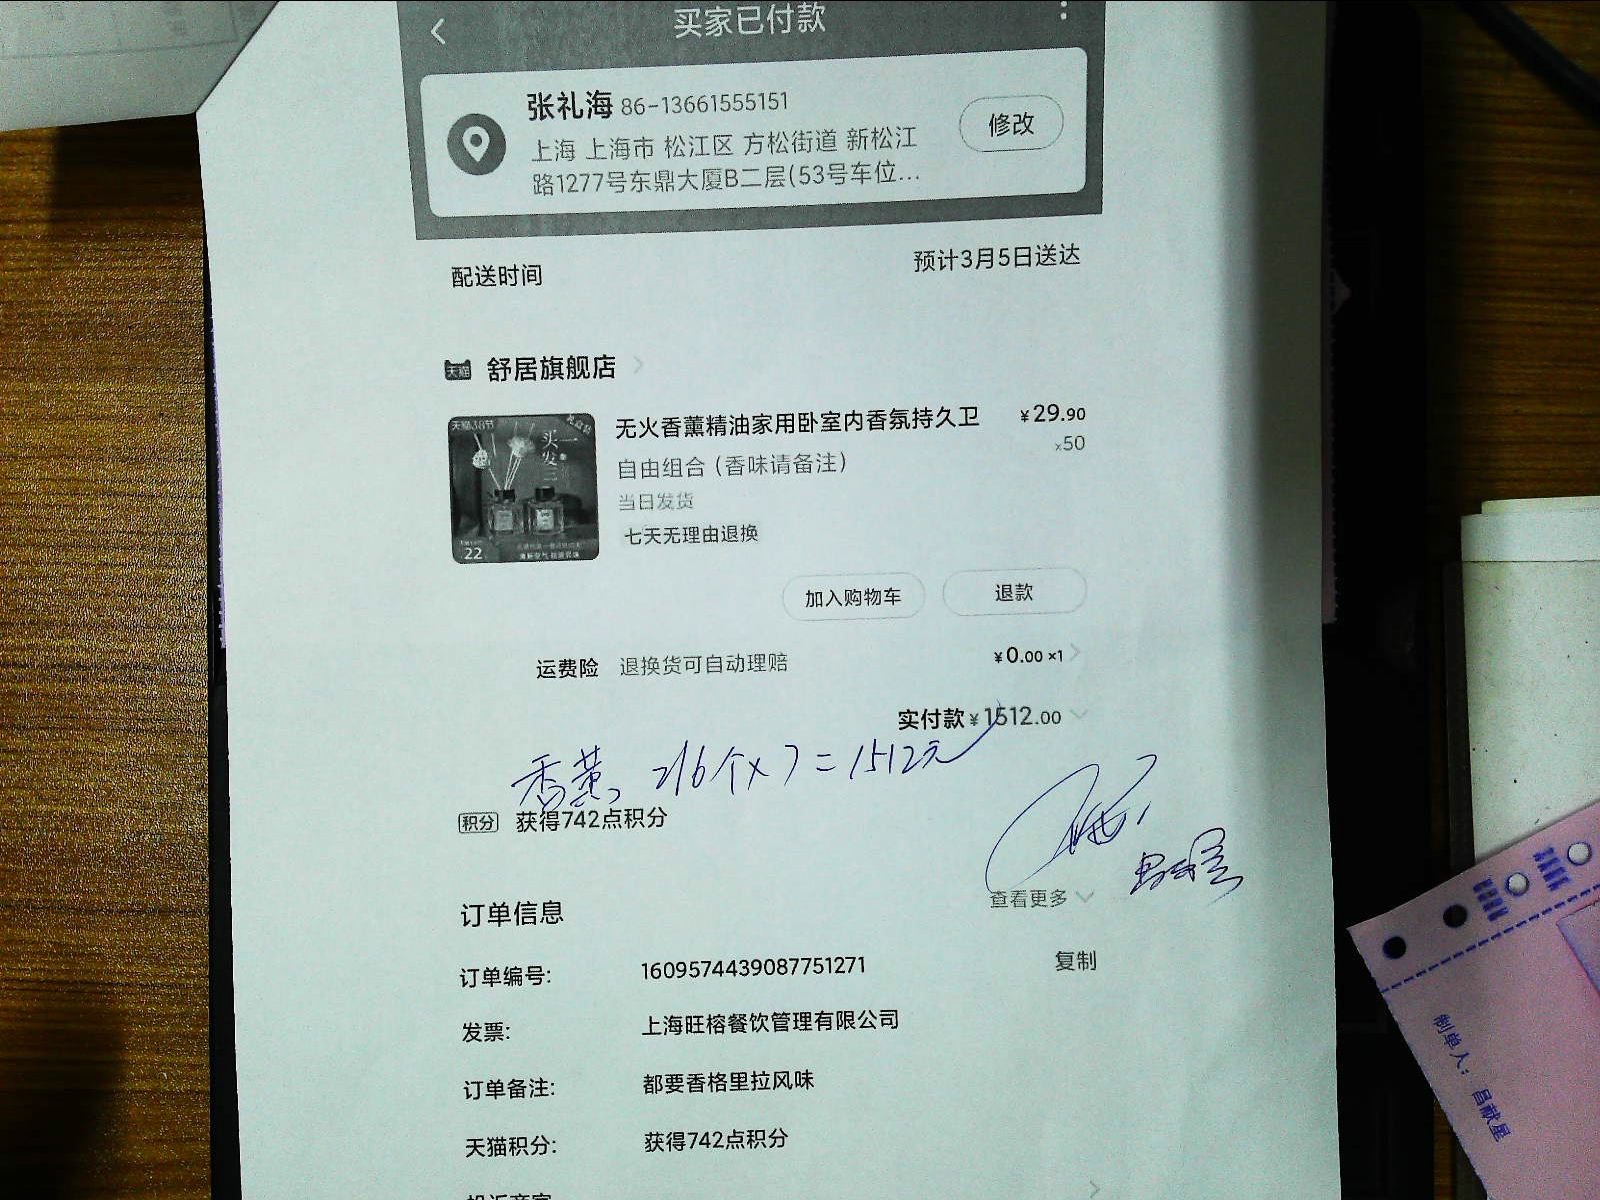 买家已付款
张礼海 86-13661555151
上海 上海市 松江区 方松街道 新松江
路1277号东鼎大厦B二层(53号车位...
修改
配送时间
预计3月5日送达
天猫 舒居旗舰店
天猫38节
买一发三
22
无火香薰精油家用卧室内香氛持久卫
¥29.90
自由组合（香味请备注）
x50
当日发货
七天无理由退换
加入购物车
退款
运费险 退换货可自动理赔 ¥0.00 ×1
实付款 ¥1512.00
香薰 216个×7=1512元
积分 获得742点积分
查看更多
订单信息
订单编号: 1609574439087751271 复制
发票: 上海旺榕餐饮管理有限公司
订单备注: 都要香格里拉风味
天猫积分: 获得742点积分
制单人: 昌献星